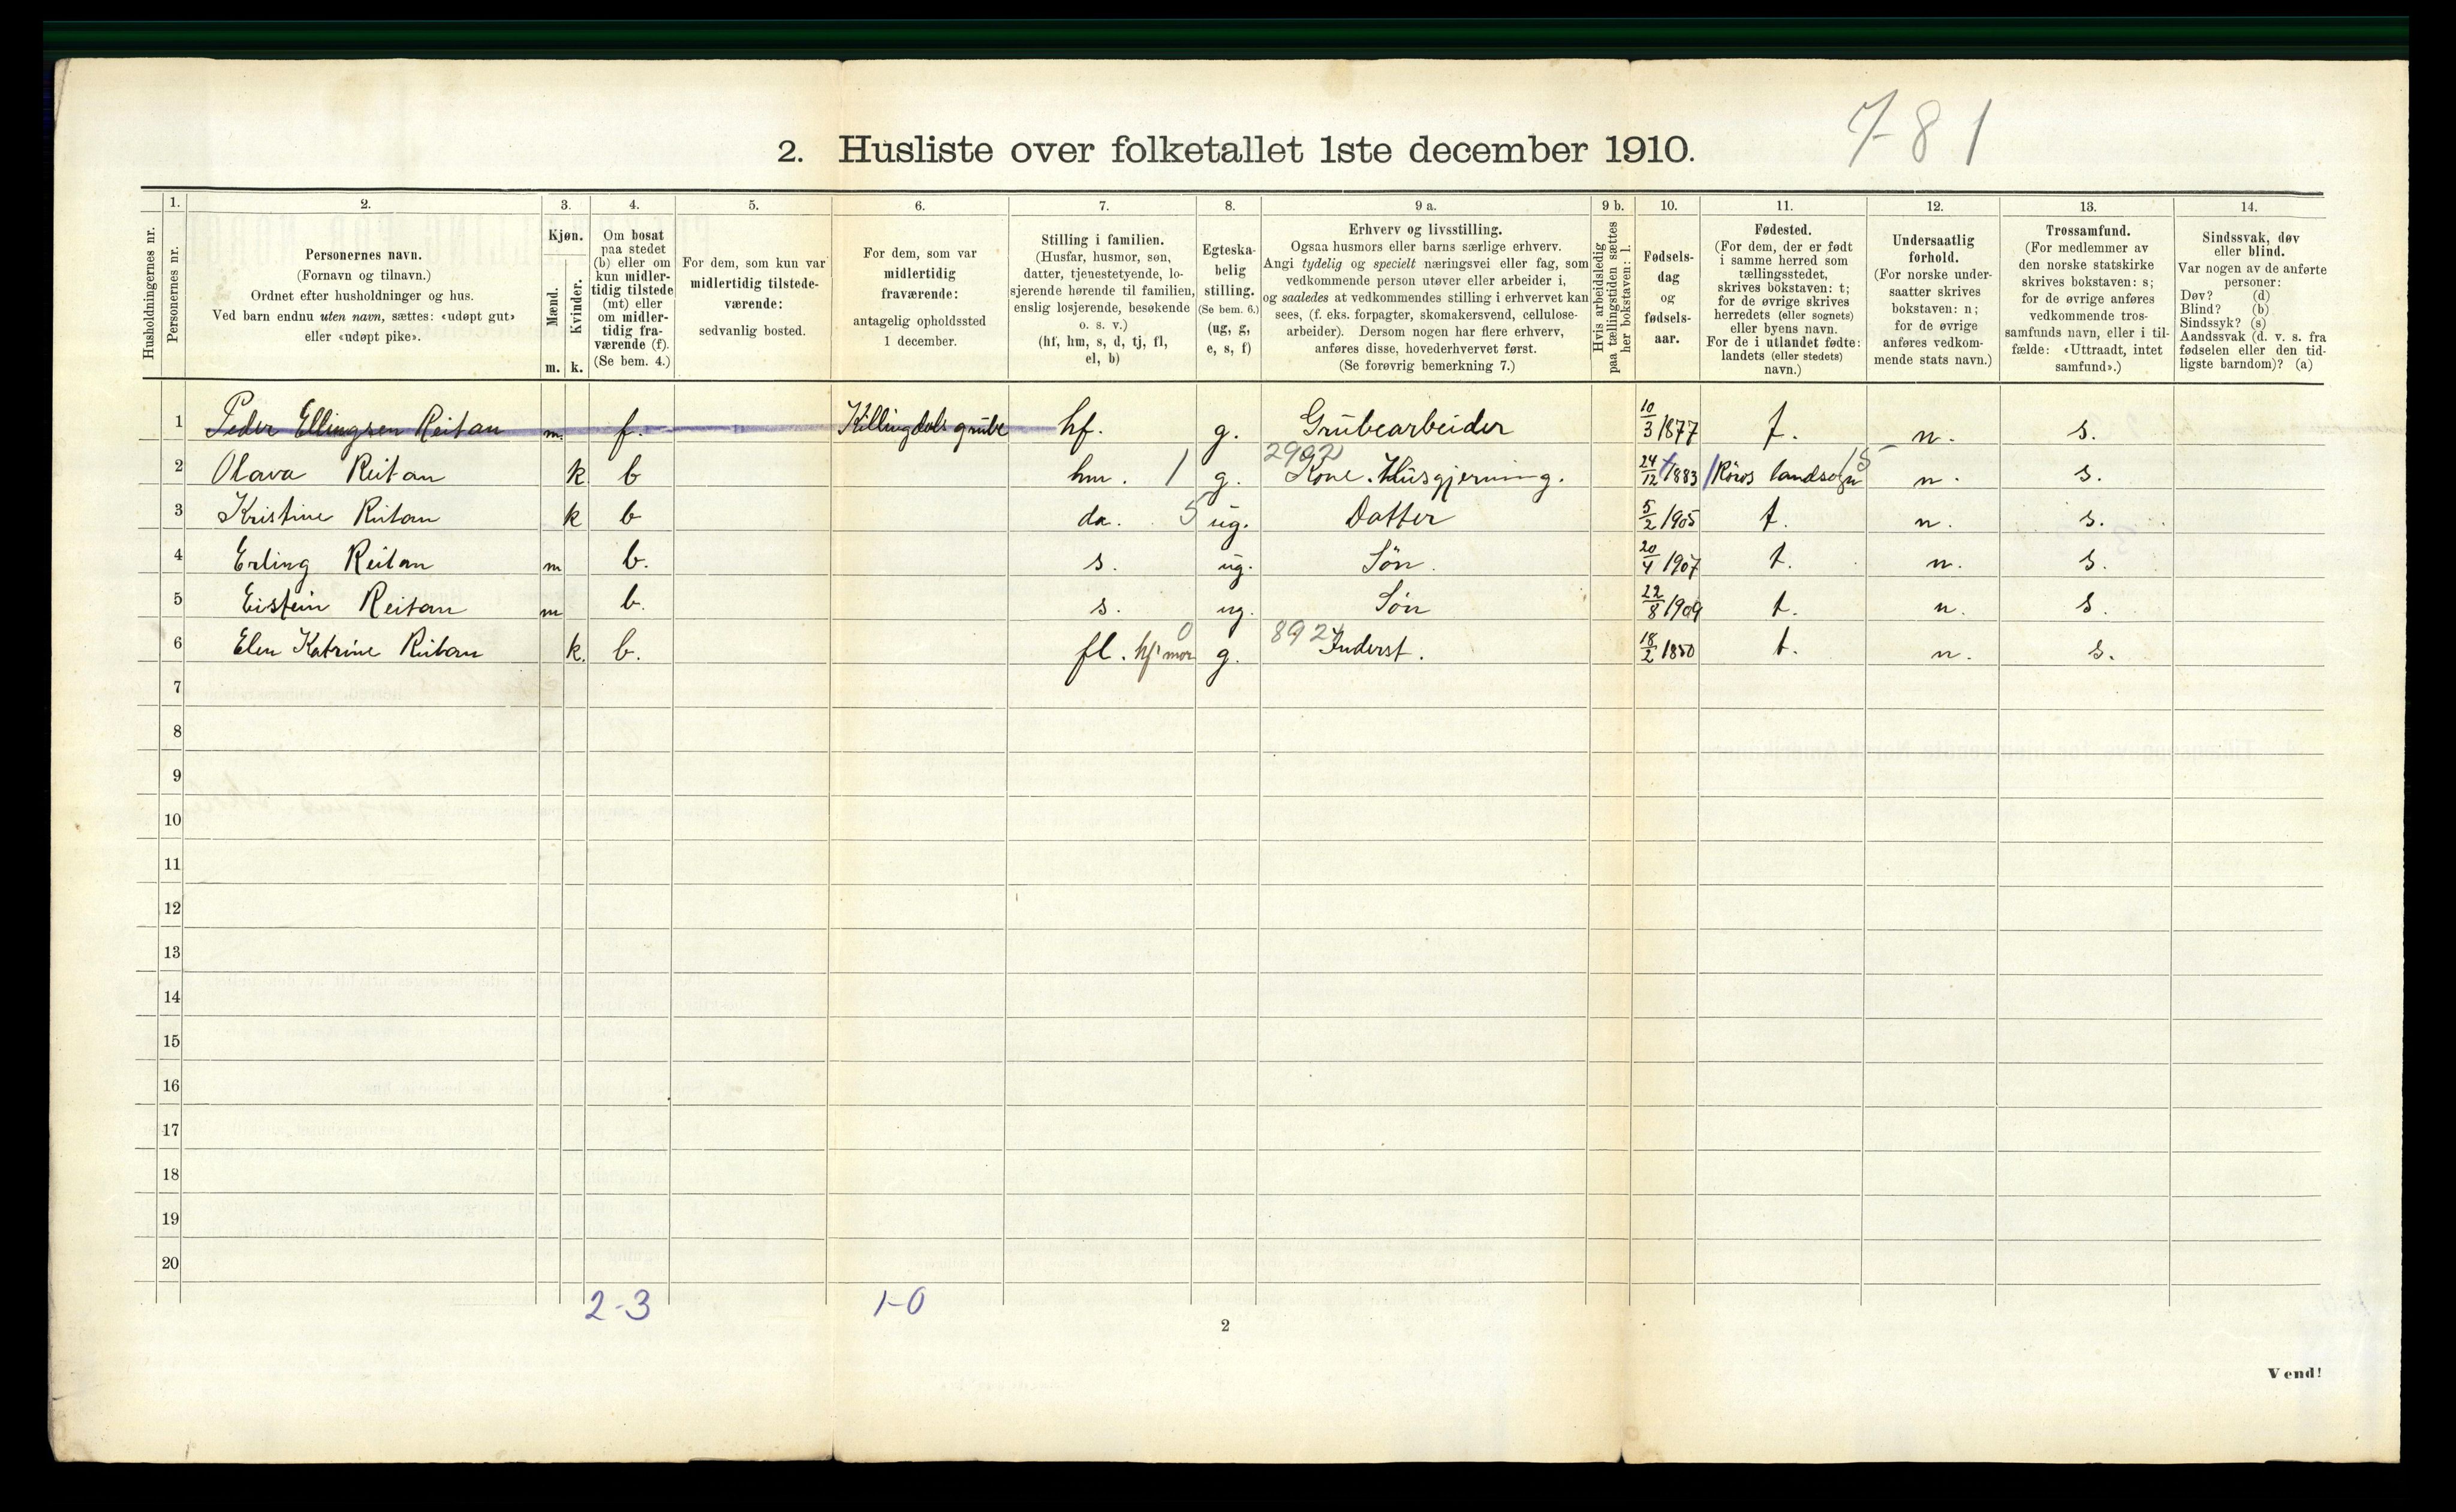 7-81
2. Husliste over folketallet 1ste december 1910.
Husholdningernes nr.
1. Personernes nr.
2. Personernes navn. (Fornavn og tilnavn.) Ordnet efter husholdninger og hus. Ved barn endnu uten navn, sættes: «udøpt gut» eller «udøpt pike».
3. Kjøn. Mænd. m. Kvinder. k.
4. Om bosat paa stedet (b) eller om kun midlertidig tilstede (mt) eller om midlertidig fraværende (f). (Se bem. 4.)
5. For dem, som kun var midlertidig tilstedeværende: sedvanlig bosted.
6. For dem, som var midlertidig fraværende: antagelig opholdssted 1 december.
7. Stilling i familien. (Husfar, husmor, søn, datter, tjenestetyende, losjerende hørende til familien, enslig losjerende, besøkende o. s. v.) (hf, hm, s, d, tj, fl, el, b)
8. Egteskabelig stilling. (Se bem. 6.) (ug, g, e, s, f)
9 a. Erhverv og livsstilling. Ogsaa husmors eller barns særlige erhverv. Angi tydelig og specielt næringsvei eller fag, som vedkommende person utøver eller arbeider i, og saaledes at vedkommendes stilling i erhvervet kan sees, (f. eks. forpagter, skomakersvend, cellulosearbeider). Dersom nogen har flere erhverv, anføres disse, hovederhvervet først. (Se forøvrig bemerkning 7.)
9 b. Hvis arbeidsledig paa tællingstiden sættes her bokstaven: l.
10. Fødselsdag og fødselsaar.
11. Fødested. (For dem, der er født i samme herred som tællingsstedet, skrives bokstaven: t; for de øvrige skrives herredets (eller sognets) eller byens navn. For de i utlandet fødte: landets (eller stedets) navn.)
12. Undersaatlig forhold. (For norske undersaatter skrives bokstaven: n; for de øvrige anføres vedkommende stats navn.)
13. Trossamfund. (For medlemmer av den norske statskirke skrives bokstaven: s; for de øvrige anføres vedkommende trossamfunds navn, eller i tilfælde: «Uttraadt, intet samfund».)
14. Sindssvak, døv eller blind. Var nogen av de anførte personer: Døv? (d) Blind? (b) Sindssyk? (s) Aandssvak (d. v. s. fra fødselen eller den tidligste barndom)? (a)
1 Peder Ellingsen Reitan m. f. Killingdals grube hf. g. Grubearbeider 10/3 1877 t. n. s.
2 Olava Reitan k b hm. 1 g. 2902 Kone. Husgjerning. 24/12 1883 Röros landsogn 15 n. s.
3 Kristine Reitan k b da. 5 ug. Datter 5/2 1905 t. n. s.
4 Erling Reitan m b. s. ug. Sön. 20/4 1907 t. n. s.
5 Eistein Reitan m b. s. ug. Sön 22/8 1909 t. n. s.
6 Elen Katrine Reitan k. b. fl. hf's mor 0 g. 892 Inderst. 18/2 1850 t. n. s.
7
8
9
10
11
12
13
14
15
16
17
18
19
20
2-3 1-0
2
Vend!